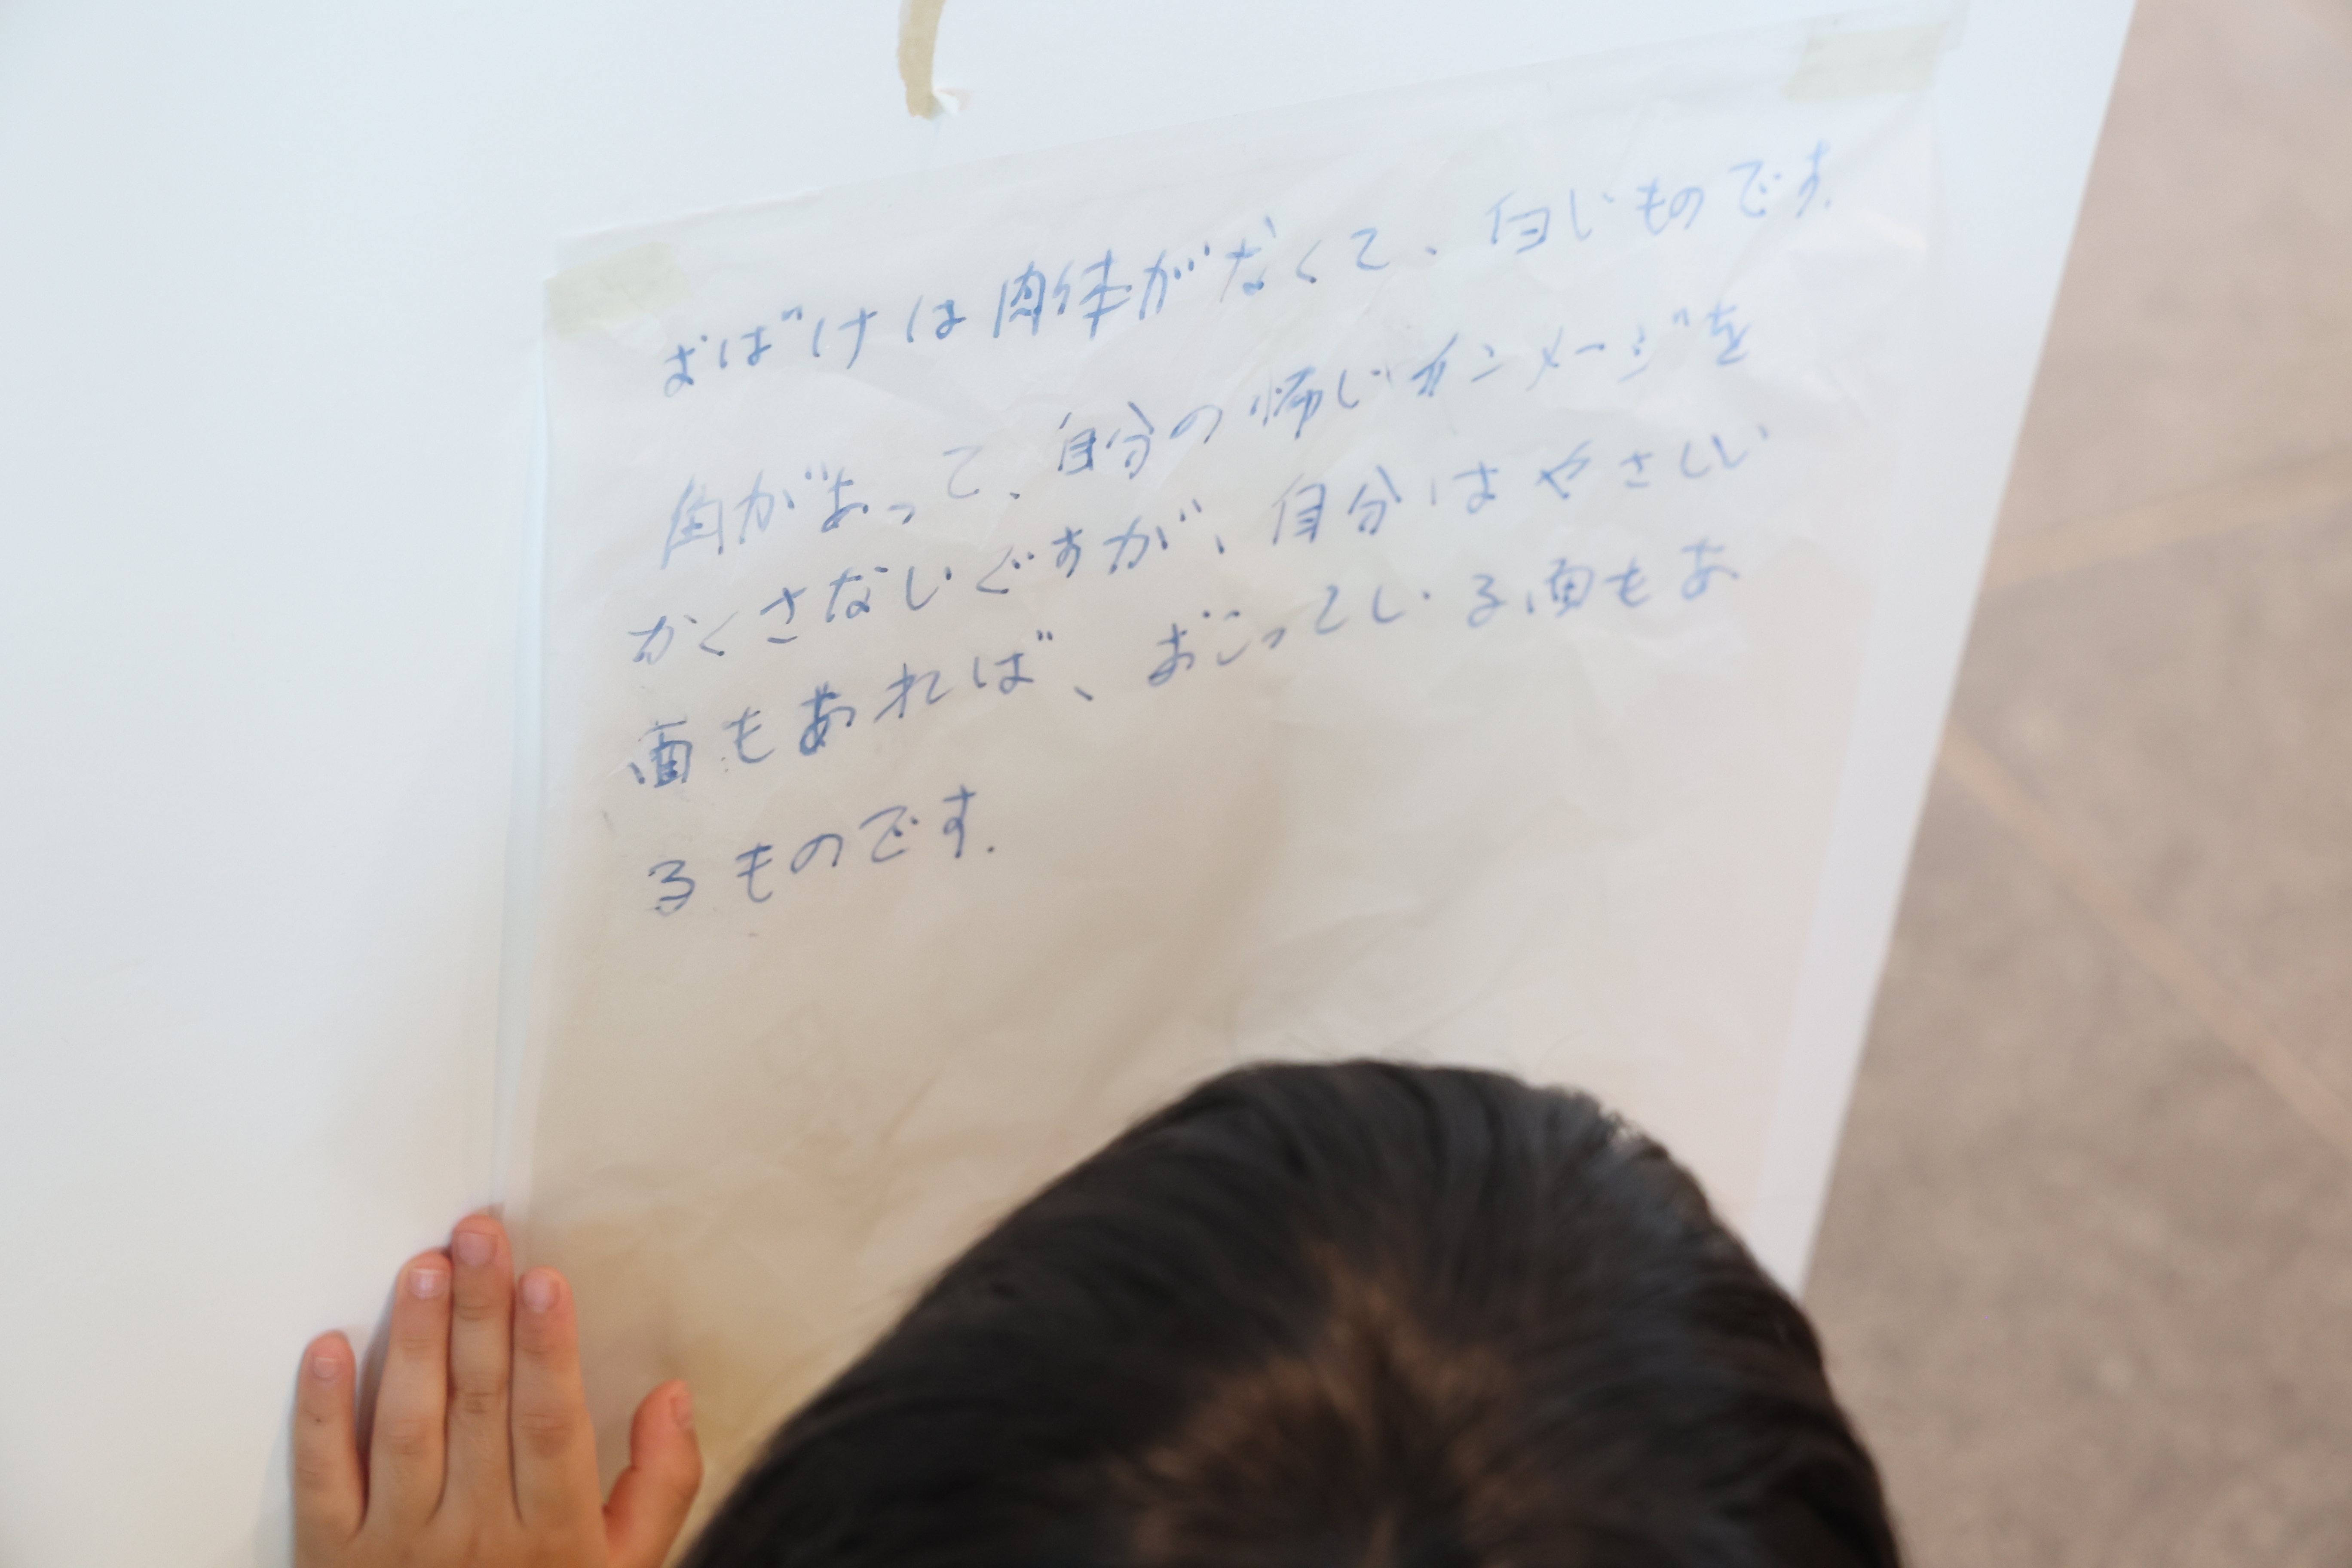 おばけは肉体がなくて、白いものです.
角があって、自分の怖いインメージを
かくさないですが、自分はやさしい
面もあれば、おこっている面もあ
るものです.